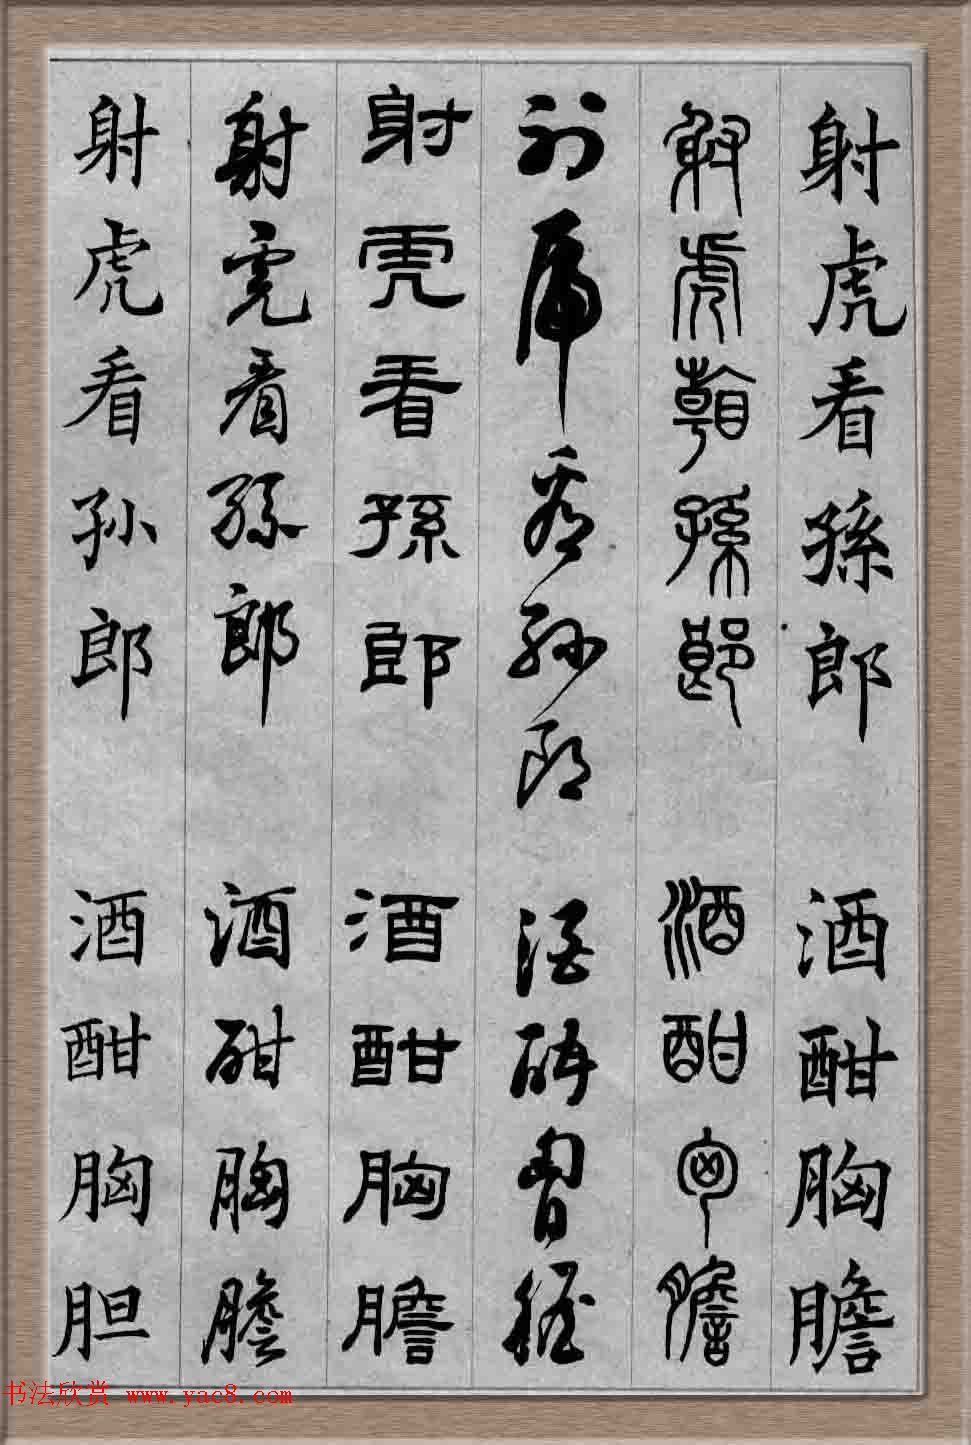 射虎看孫郎 酒酣胸膽
射虎看孫郎 酒酣胸膽
射虎看孫郎 酒酣胸膽
射虎看孫郎 酒酣胸膽
射虎看孫郎 酒酣胸膽
射虎看孙郎 酒酣胸胆
书法欣赏 www.yac8.com